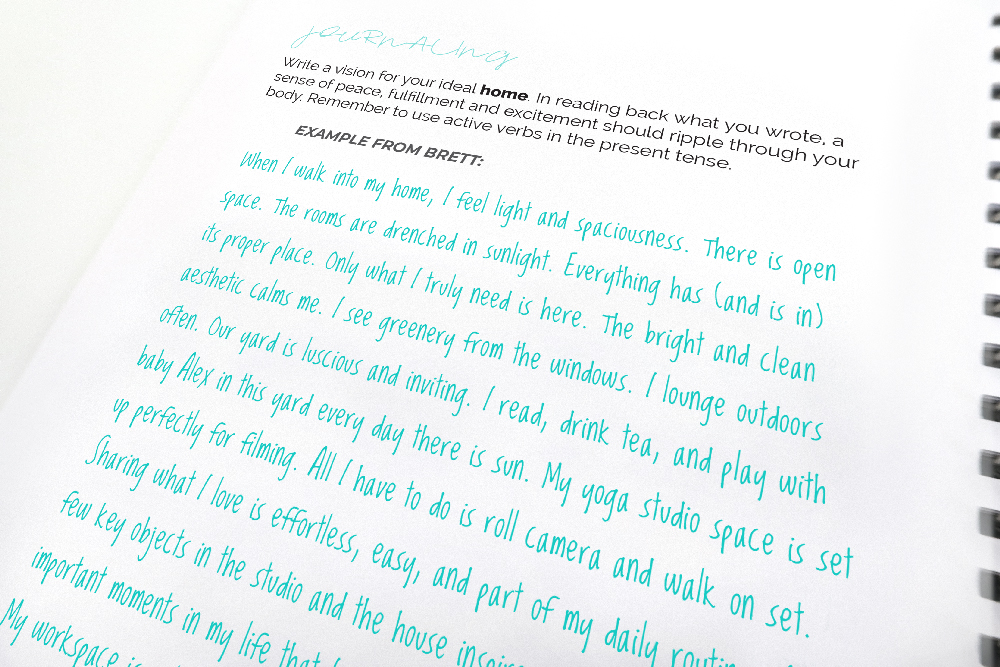 JOURNALING
Write a vision for your ideal home. In reading back what you wrote, a
sense of peace, fulfillment and excitement should ripple through your
body. Remember to use active verbs in the present tense.
EXAMPLE FROM BRETT:
When I walk into my home, I feel light and spaciousness. There is open
space. The rooms are drenched in sunlight. Everything has (and is in)
its proper place. Only what I truly need is here. The bright and clean
aesthetic calms me. I see greenery from the windows. I lounge outdoors
often. Our yard is luscious and inviting. I read, drink tea, and play with
baby Alex in this yard every day there is sun. My yoga studio space is set
up perfectly for filming. All I have to do is roll camera and walk on set.
Sharing what I love is effortless, easy, and part of my daily
few key objects in the studio and the house
important moments in my life that
My workspace is